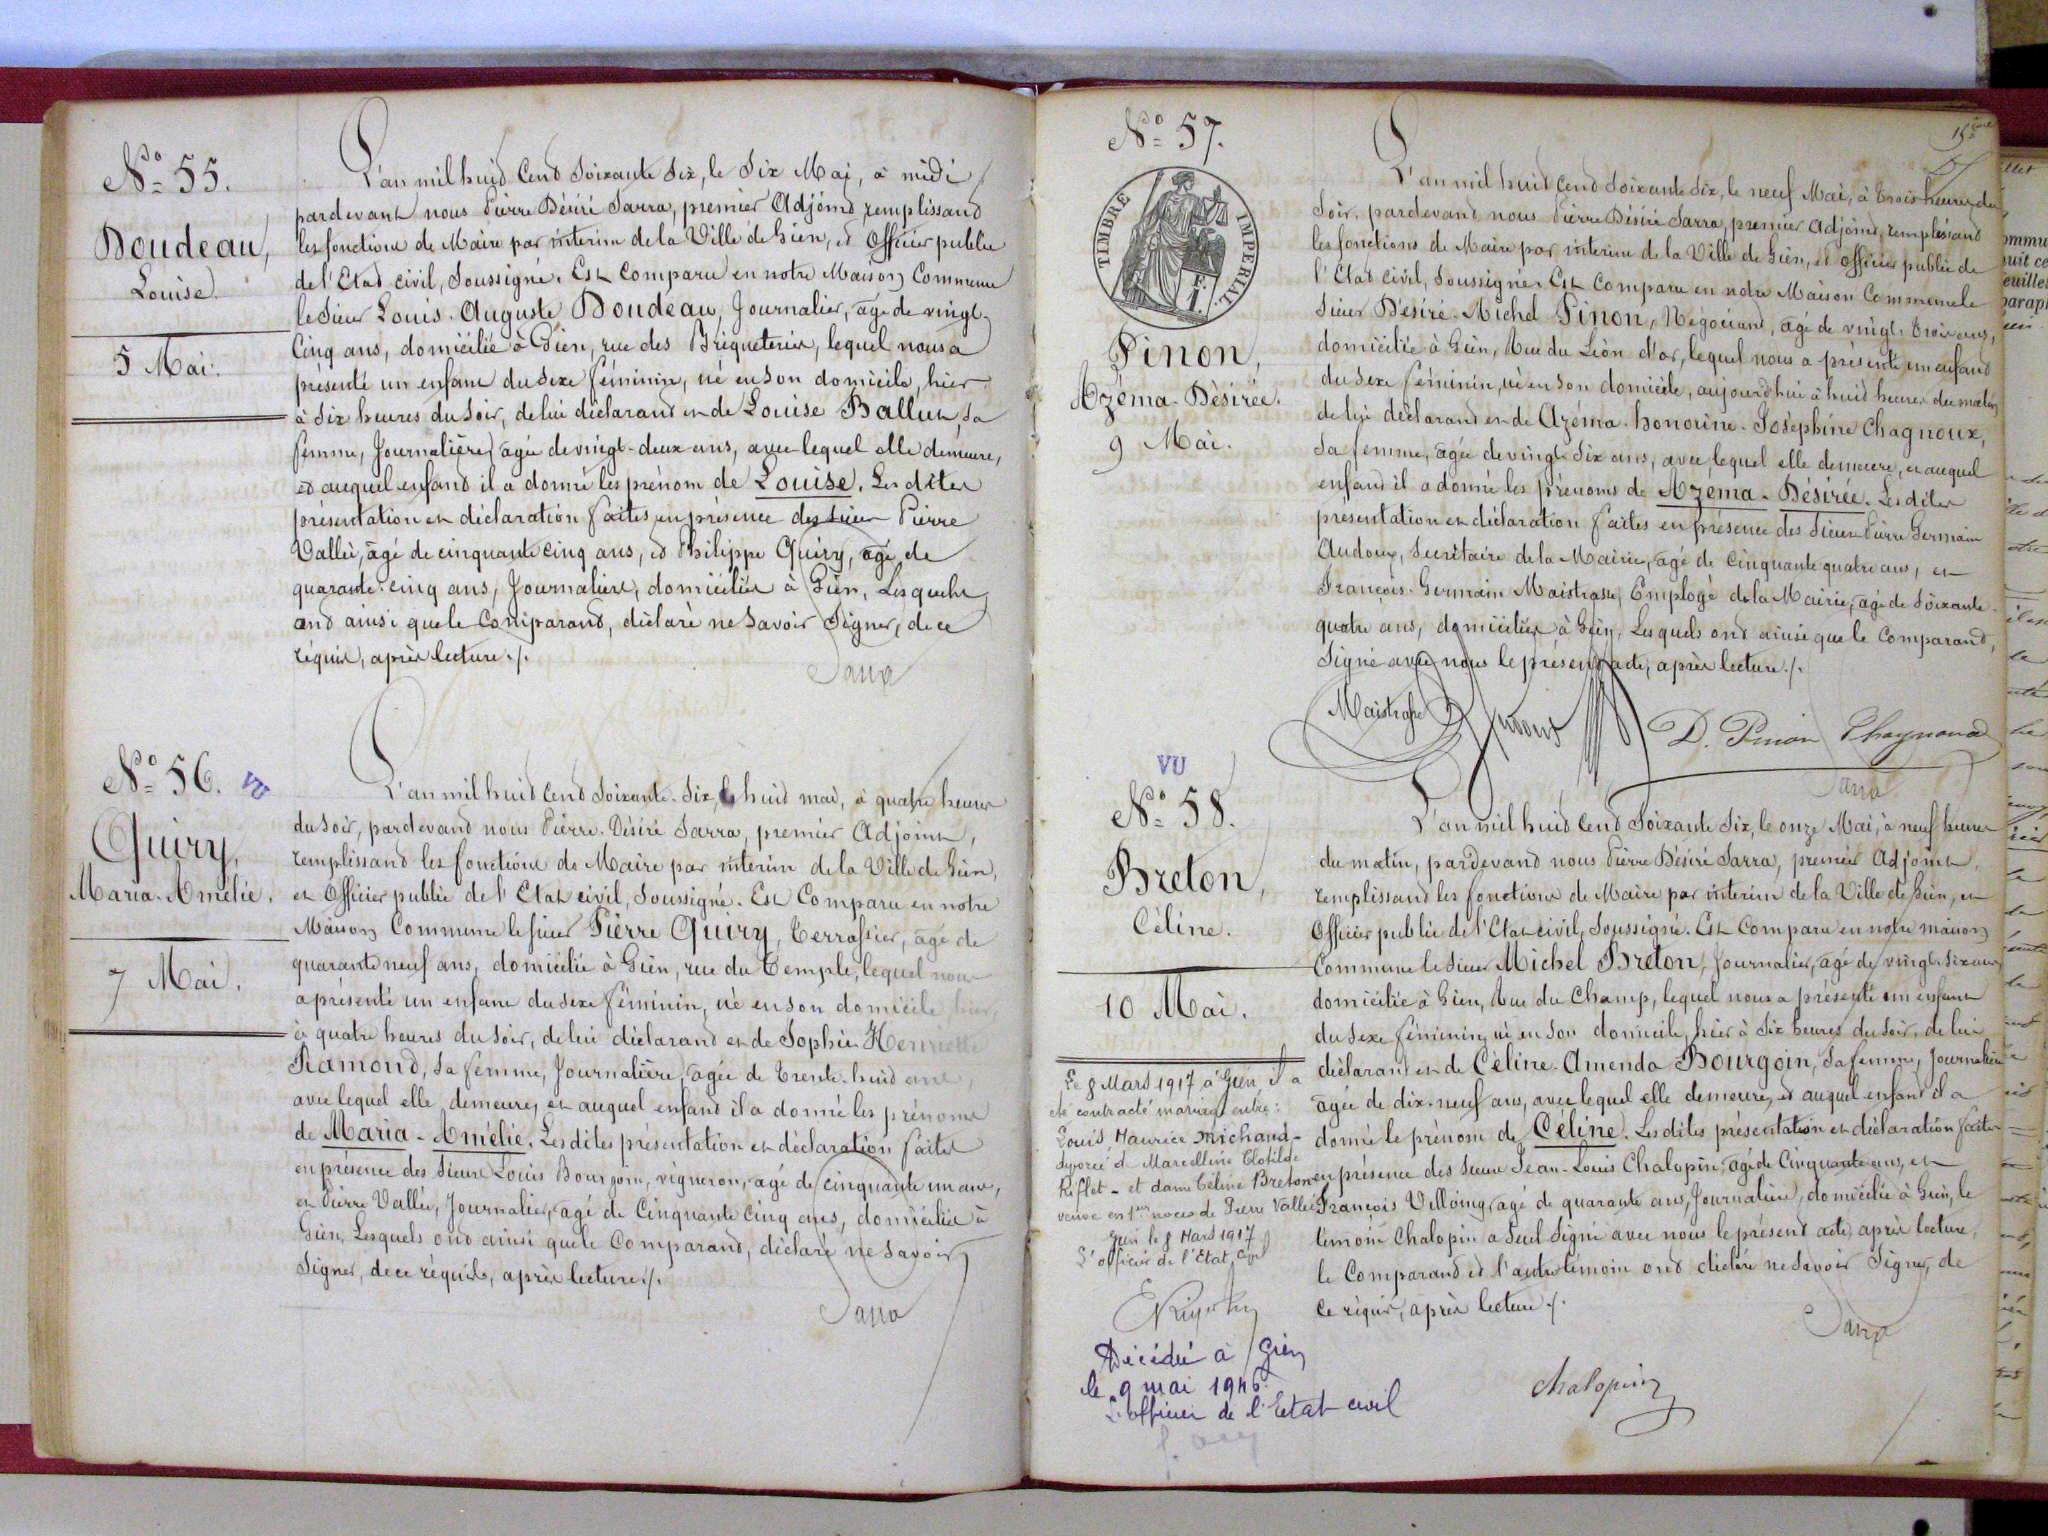 N° 55.
Doudeau,
Louise.
5 Mai.
L'an mil huit Cent Soixante Six, le Six Mai, à midi
pardevant nous Pierre Désiré Sarra, premier Adjoint, remplissant
les fonctions de Maire par interim de la Ville de Gien, et Officier public
de l'Etat civil, Soussigné. Est Comparu en notre Maison Commune
le Sieur Louis-Auguste Doudeau, Journalier, âgé de vingt-
Cinq ans, domicilié à Gien, rue des Briqueteries, lequel nous a
présenté un enfant du Sexe féminin, né en son domicile, hier
à Six heures du Soir, de lui déclarant et de Louise Ballut, Sa
femme, Journalière, âgée de vingt-deux ans, avec lequel elle demeure,
et auquel enfant il a donné les prénom de Louise. Les dites
présentation et déclaration faites en présence des Sieurs Pierre
Vallée, âgé de cinquante cinq ans, et Philippe Quiry, âgé de
quarante-cinq ans, Journaliers, domiciliés à Gien, Lesquels
ont ainsi que le Comparant, déclaré ne Savoir Signer, de ce
réquis, après lecture ./.
Sarra
N° 56. VU
Quiry,
Maria-Amélie.
7 Mai.
L'an mil huit Cent Soixante-Six, le huit mai, à quatre heures
du Soir, pardevant nous Pierre-Désiré Sarra, premier Adjoint,
remplissant les fonctions de Maire par interim de la Ville de Gien,
et Officier public de l'Etat civil, Soussigné. Est Comparu en notre
Maison Commune le Sieur Pierre Quiry, Terrassier, âgé de
quarante neuf ans, domicilié à Gien, rue du Temple, lequel nous
a présenté un enfant du Sexe féminin, né en son domicile, hier,
à quatre heures du Soir, de lui déclarant et de Sophie Henriette
Ramond, Sa femme, Journalière, âgée de Trente-huit ans,
avec lequel elle demeure, et auquel enfant il a donné les prénoms
de Maria-Amélie. Les dites présentation et déclaration faites
en présence des Sieurs Louis Bourgoin, vigneron, âgé de cinquante un ans,
et Pierre Vallée, Journalier, âgé de Cinquante Cinq ans, domiciliés à
Gien, Lesquels ont ainsi que le Comparant, déclaré ne Savoir
Signer, de ce réquis, après lecture ./.
Sarra
15ème
N° 57.
TIMBRE IMPERIAL
F. 1.
Pinon,
Azéma-Désirée.
9 Mai.
L'an mil huit Cent Soixante Six, le neuf Mai, à trois heures du
Soir, pardevant nous Pierre Désiré Sarra, premier Adjoint, remplissant
les fonctions de Maire par interim de la Ville de Gien, et Officier public de
l'Etat civil, Soussigné. Est Comparu en notre Maison Commune le
Sieur Désiré-Michel Pinon, Négociant, âgé de vingt-trois ans,
domicilié à Gien, Rue du Lion d'or, lequel nous a présenté un enfant
du Sexe féminin, né en son domicile, aujourd'hui à huit heures du matin
de lui déclarant et de Azéma-honorine-Joséphine Chagnoux,
Sa femme, âgée de vingt Six ans, avec lequel elle demeure, et auquel
enfant il a donné les prénoms de Azema-Désirée. Les dites
présentation et déclaration faites en présence des Sieurs Pierre Germain
Audoux, Secrétaire de la Mairie, âgé de Cinquante quatre ans, et
François-Germain Maistrasse, Employé de la Mairie, âgé de Soixante-
quatre ans, domiciliés à Gien, Lesquels ont ainsi que le Comparant,
Signé avec nous le présent acte, après lecture ./.
Maistrasse Audoux D. Pinon Chagnoux
Sarra
VU
N° 58.
Breton,
Céline.
10 Mai.
L'an mil huit Cent Soixante Six, le onze Mai, à neuf heures
du matin, pardevant nous Pierre Désiré Sarra, premier Adjoint,
remplissant les fonctions de Maire par interim de la Ville de Gien, et
Officier public de l'Etat civil, Soussigné. Est Comparu en notre maison
Commune le Sieur Michel Breton, Journalier, âgé de vingt-Six ans
domicilié à Gien, Rue du Champ, lequel nous a présenté un enfant
du Sexe féminin, né en Son domicile, hier à Six heures du Soir, de lui
déclarant et de Céline Amenda Bourgoin, Sa femme, Journalière
âgée de dix-neuf ans, avec lequel elle demeure, et auquel enfant il a
donné le prénom de Céline. Les dites présentation et déclaration faites
en présence des Sieurs Jean-Louis Chalopin, âgé de Cinquante ans, et
François Villoing, âgé de quarante ans, Journaliers, domiciliés à Gien, le
témoin Chalopin a Seul Signé avec nous le présent acte, après lecture,
le Comparant et l'autre témoin ont déclaré ne Savoir Signer, de
ce réquis, après lecture ./.
Sarra
Chalopin
Le 8 Mars 1917 à Gien, il a
été contracté mariage entre:
Louis Maurice Michaud-
divorcé de Marcelline Clotilde
Rifflet - et dame Céline Breton
veuve en 1ères noces de Pierre Vallée
Gien le 8 Mars 1917
L'officier de l'Etat Civil
Décédée à Gien
le 9 mai 1946.
L'officier de l'Etat civil